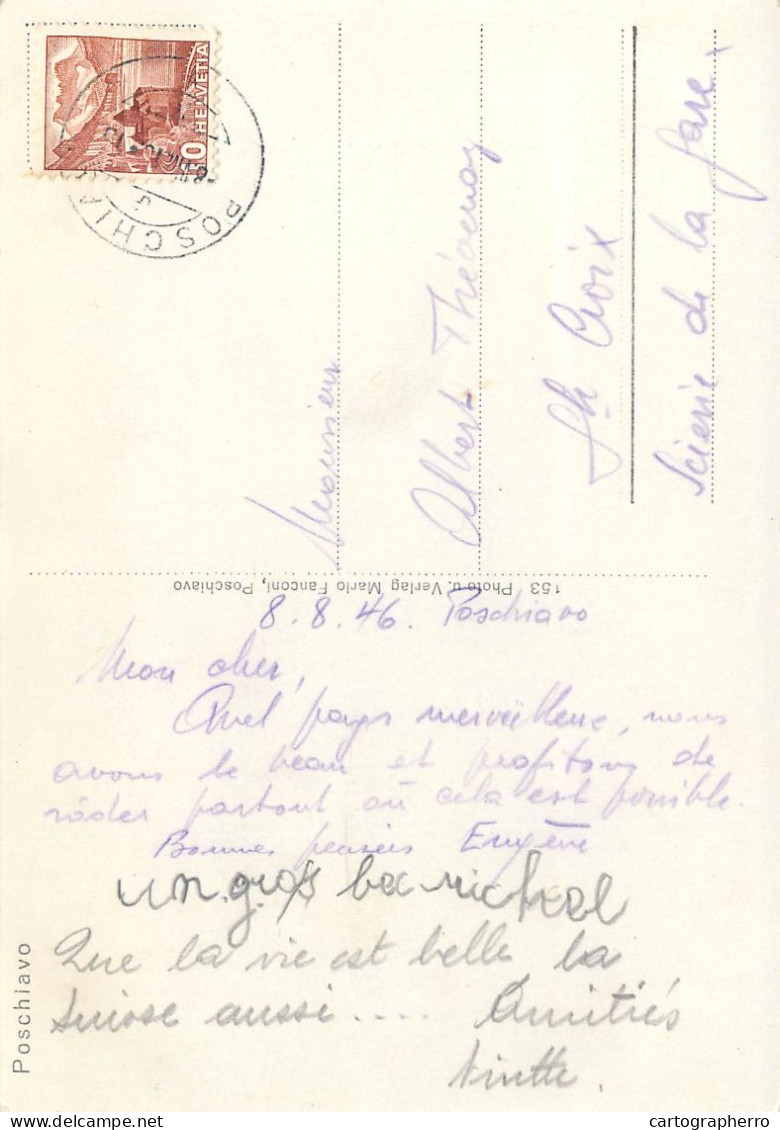 10 HELVETIA
POSCHIAVO
Monsieur
Albert Thévenaz
Ste Croix
Scierie de la gare.
153 Photo u. Verlag Mario Fanconi, Poschiavo
8.8.46. Poschiavo
Mon cher,
Quel pays merveilleux, nous
avons le beau et profitons de
rôder partout où cela est possible.
Bonnes pensées Eugène
un gros bec michel
Que la vie est belle la
Suisse aussi.... Amitiés
Poschiavo
cartographerro